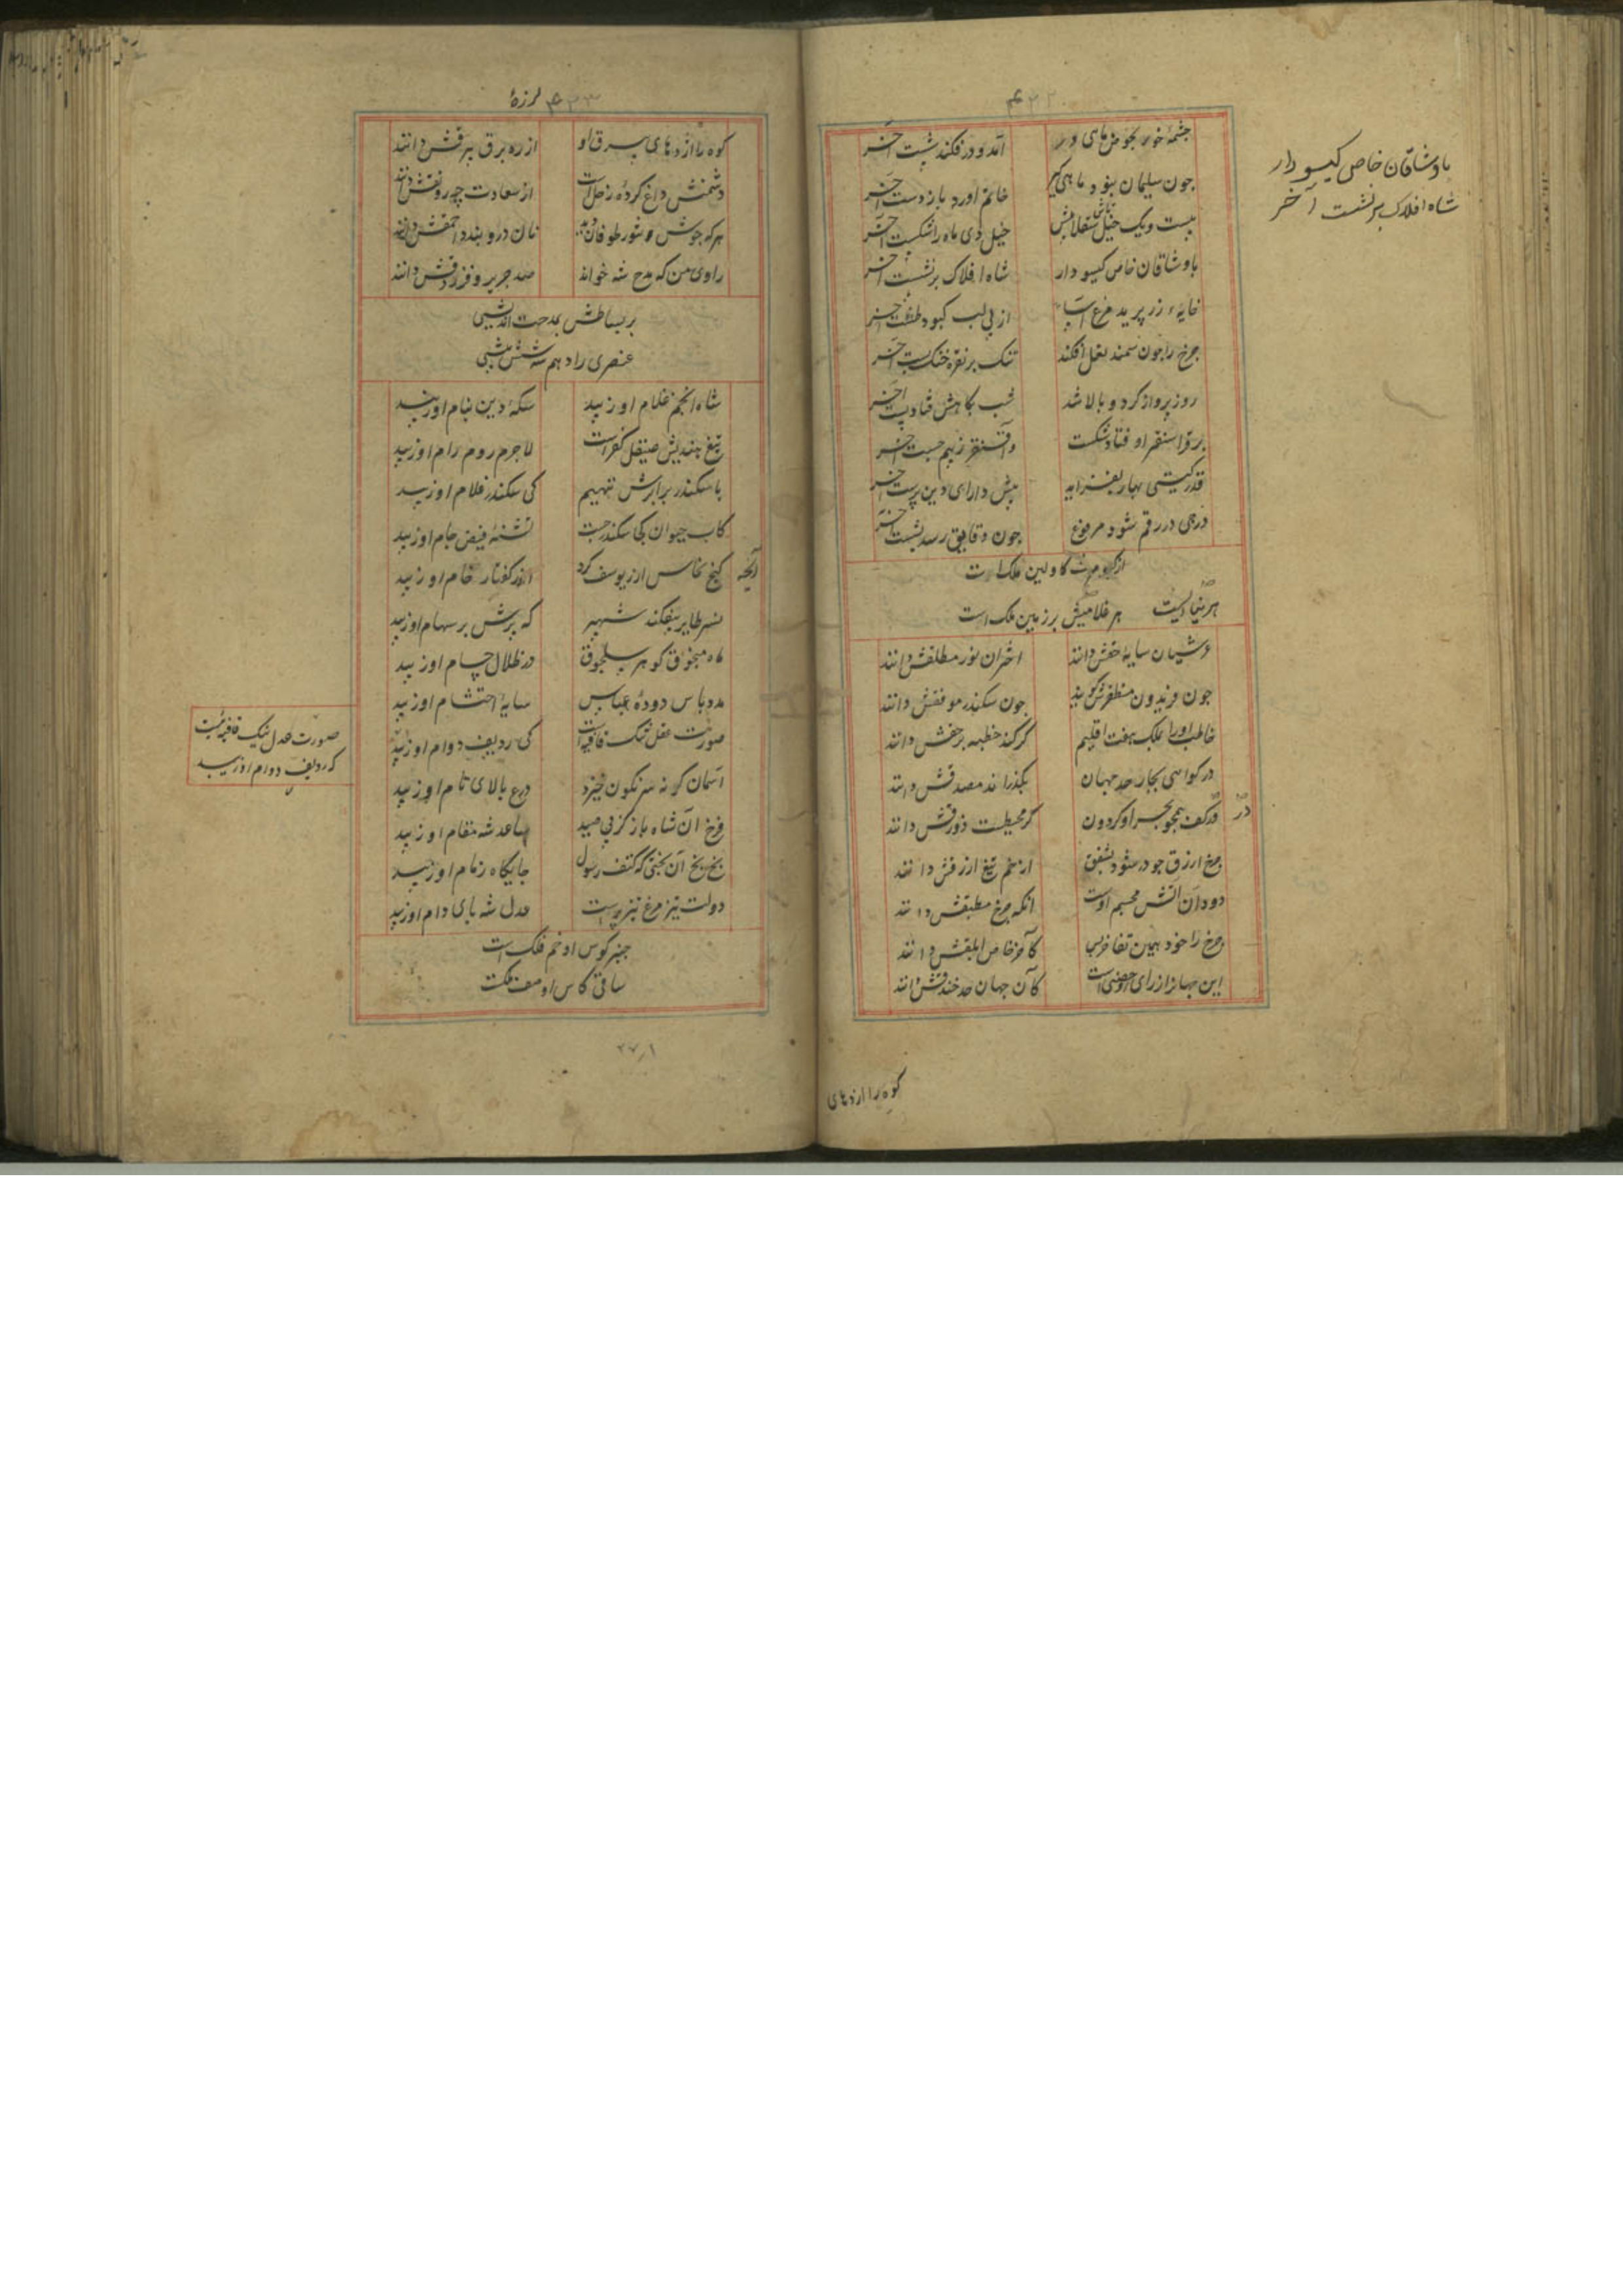 ۴۲۲
چشمهٔ خور بحوض ماهی در
آمد و در فکند شست آخر
چون سلیمان نبود ماهی گیر
خاتم آورد باز دست آخر
بیست و یک خیل
خیل دی ماه را شکست آخر
با وشاقان خاص کیسو دار
شاه افلاک برنشست آخر
با وشاقان خاص کیسو دار
شاه افلاک برنشست آخر
خایهٔ زر پرید مرغ آسا
از پی لب کبود طشت آخر
چرخ را چون سمند نعل افکند
تنک بر نقره خنک بست آخر
روز پرواز کرد و بالا شد
شب بکاهش فتاد پست آخر
برقرا سنقر اوفتاد شکست
واقسنقر ز بیم جست آخر
قدر کیتی بهار بفزاید
پیش دارای دین پرست آخر
درجی در رقم شود مرفوع
چون دقایق رسد بشست آخر
کاولین ملک است
هر غلامیش برزبین ملک است
عرشیان سایهٔ حقش دانند
اختران نور مطلقش دانند
چون فریدون مظفرش کویند
چون سکندر موفقش دانند
خاطب او را بملک هفت اقلیم
کر کند خطبه بر حقش دانند
در کواهی بجار حد جهان
بکذراند مصدقش دانند
در
قدر کف همچو بحر او کردون
کر محیطست ذورقش دانند
چرخ ازرق چو در شود بشفق
از نم تیغ ازرقش دانند
دود آن آتش مجسم اوست
انکه چرخ مطبقش دانند
چرخ را خود همین تفاخر بس
کآخر خاص ابلقش دانند
این جهان را از رای او حصنی است
کآن جهان حد خندقش دانند
کوه را اژدهای
۴۲۳ لرزهٔ
کوه را اژدهای برق او
از ره برق بیرقش دانند
دشمنش داغ کردهٔ زحل است
از سعادت چه رونقش دانند
هر که جوش و شور طوفان دید
نان در و بندد احمقش دانند
راوی من که مدح شه خواند
صد جریر و فرزدقش دانند
بر بساطش بمدحت اندیشی
عنصری را دهم شه ششی
شاه انجم غلام او زیبد
سکهٔ دین بنام او زیبد
تیغ هندیش صیقل کفر است
لاجرم روم رام او زیبد
با سکندر برابرش ننهیم
کی سکندر غلام او زیبد
کاب حیوان کجا سکندر جست
تشنهٔ فیض جام او زیبد
آنچه
کنج نخاس از یوسف کرد
خام او زیبد
نسر طایر بیفکند شهپر
که پرش بر سهام او زیبد
ماه منجوق کوهر سلجوق
در ظلال حسام او زیبد
مدد باس دودهٔ عباس
سایهٔ احتشام او زیبد
صورت عقل تنک قافیه است
کی ردیف دوام او زیبد
صورت عدل تنک قافیه است
که ردیف دوام او زیبد
آسمان کو نه سرنکون خیزد
درع بالای تام او زیبد
فرخ آن شاه باز کز پی صید
ساعد شه مقام او زیبد
بخ بخ آن بختی که کتف رسول
جایکاه زمام او زیبد
دولت تیز مرغ تیز پر است
عدل شه پای دام او زیبد
چنبر کوس او خم فلک است
ساقی کاس او صف ملک است
۲۷۱